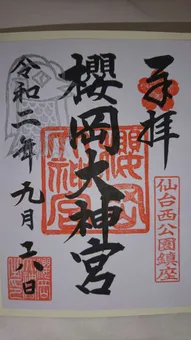 奉拝
櫻岡大神宮
仙台西公園鎮座
令和二年九月六日
櫻岡大神宮